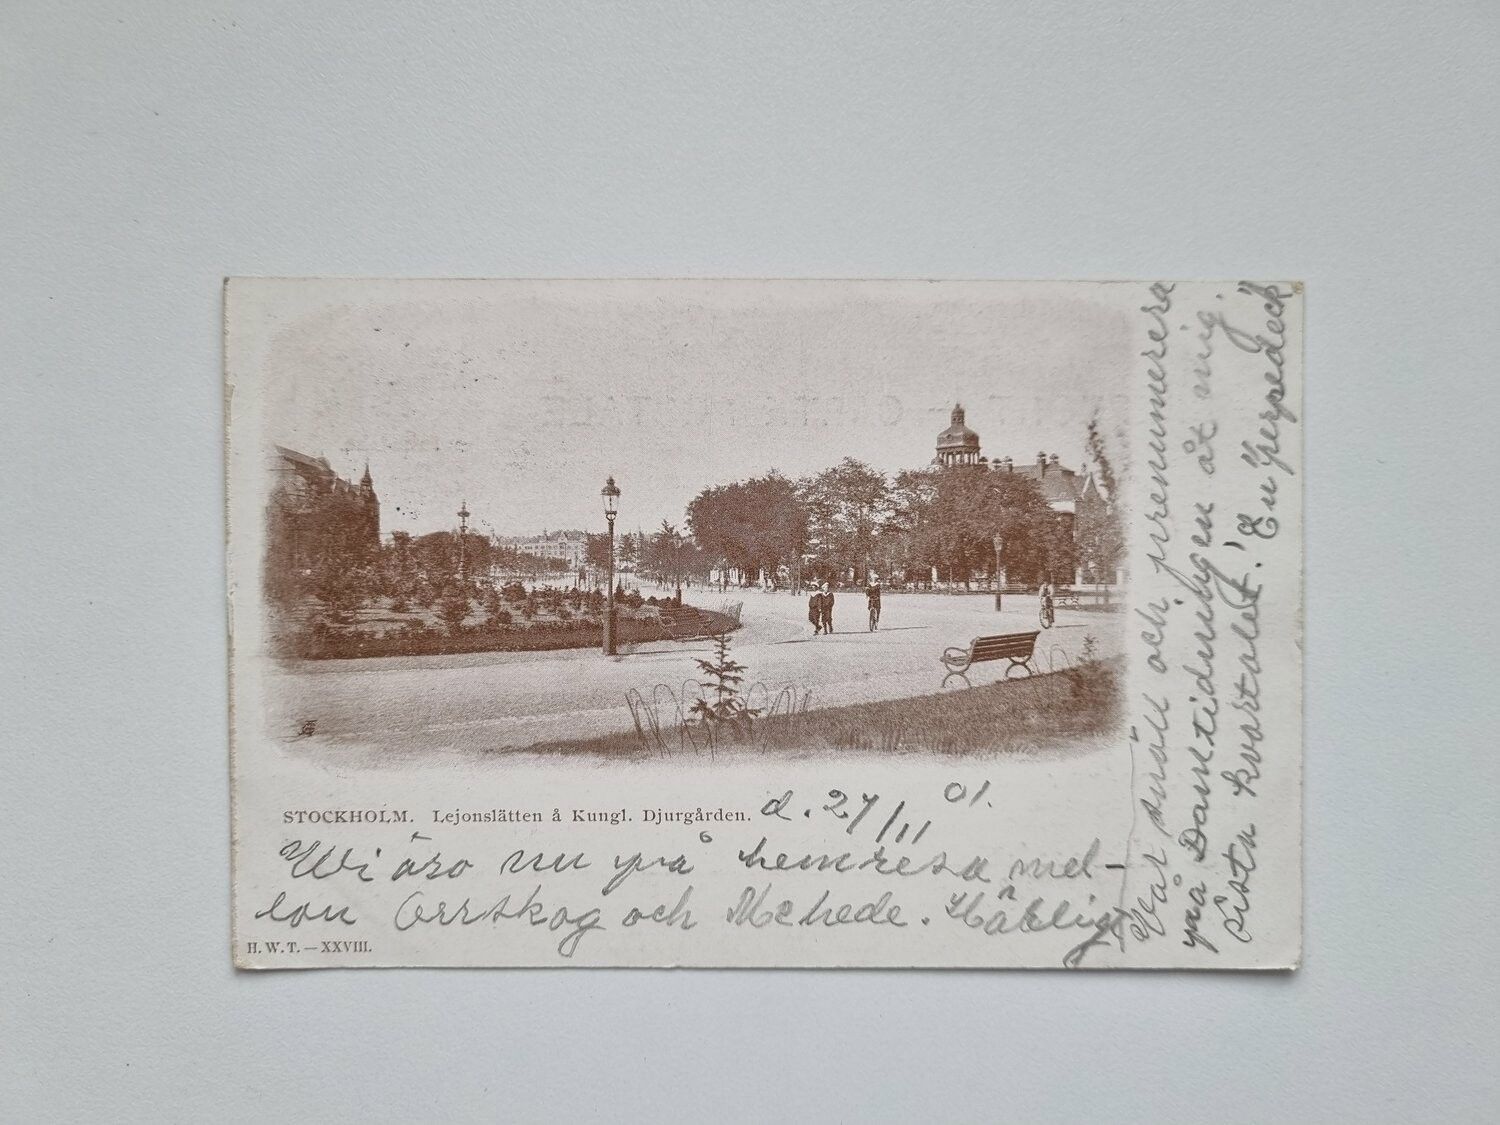 STOCKHOLM. Lejonslätten å Kungl. Djurgården.
d. 27/11 01.
Wi äro nu på hemresa mel-
lon Orrskog och Mehede.
H. W. T. — XXVIII.
Var snäll och prenumerera
på Damtidningen åt mig.
Sista kvartalet! En